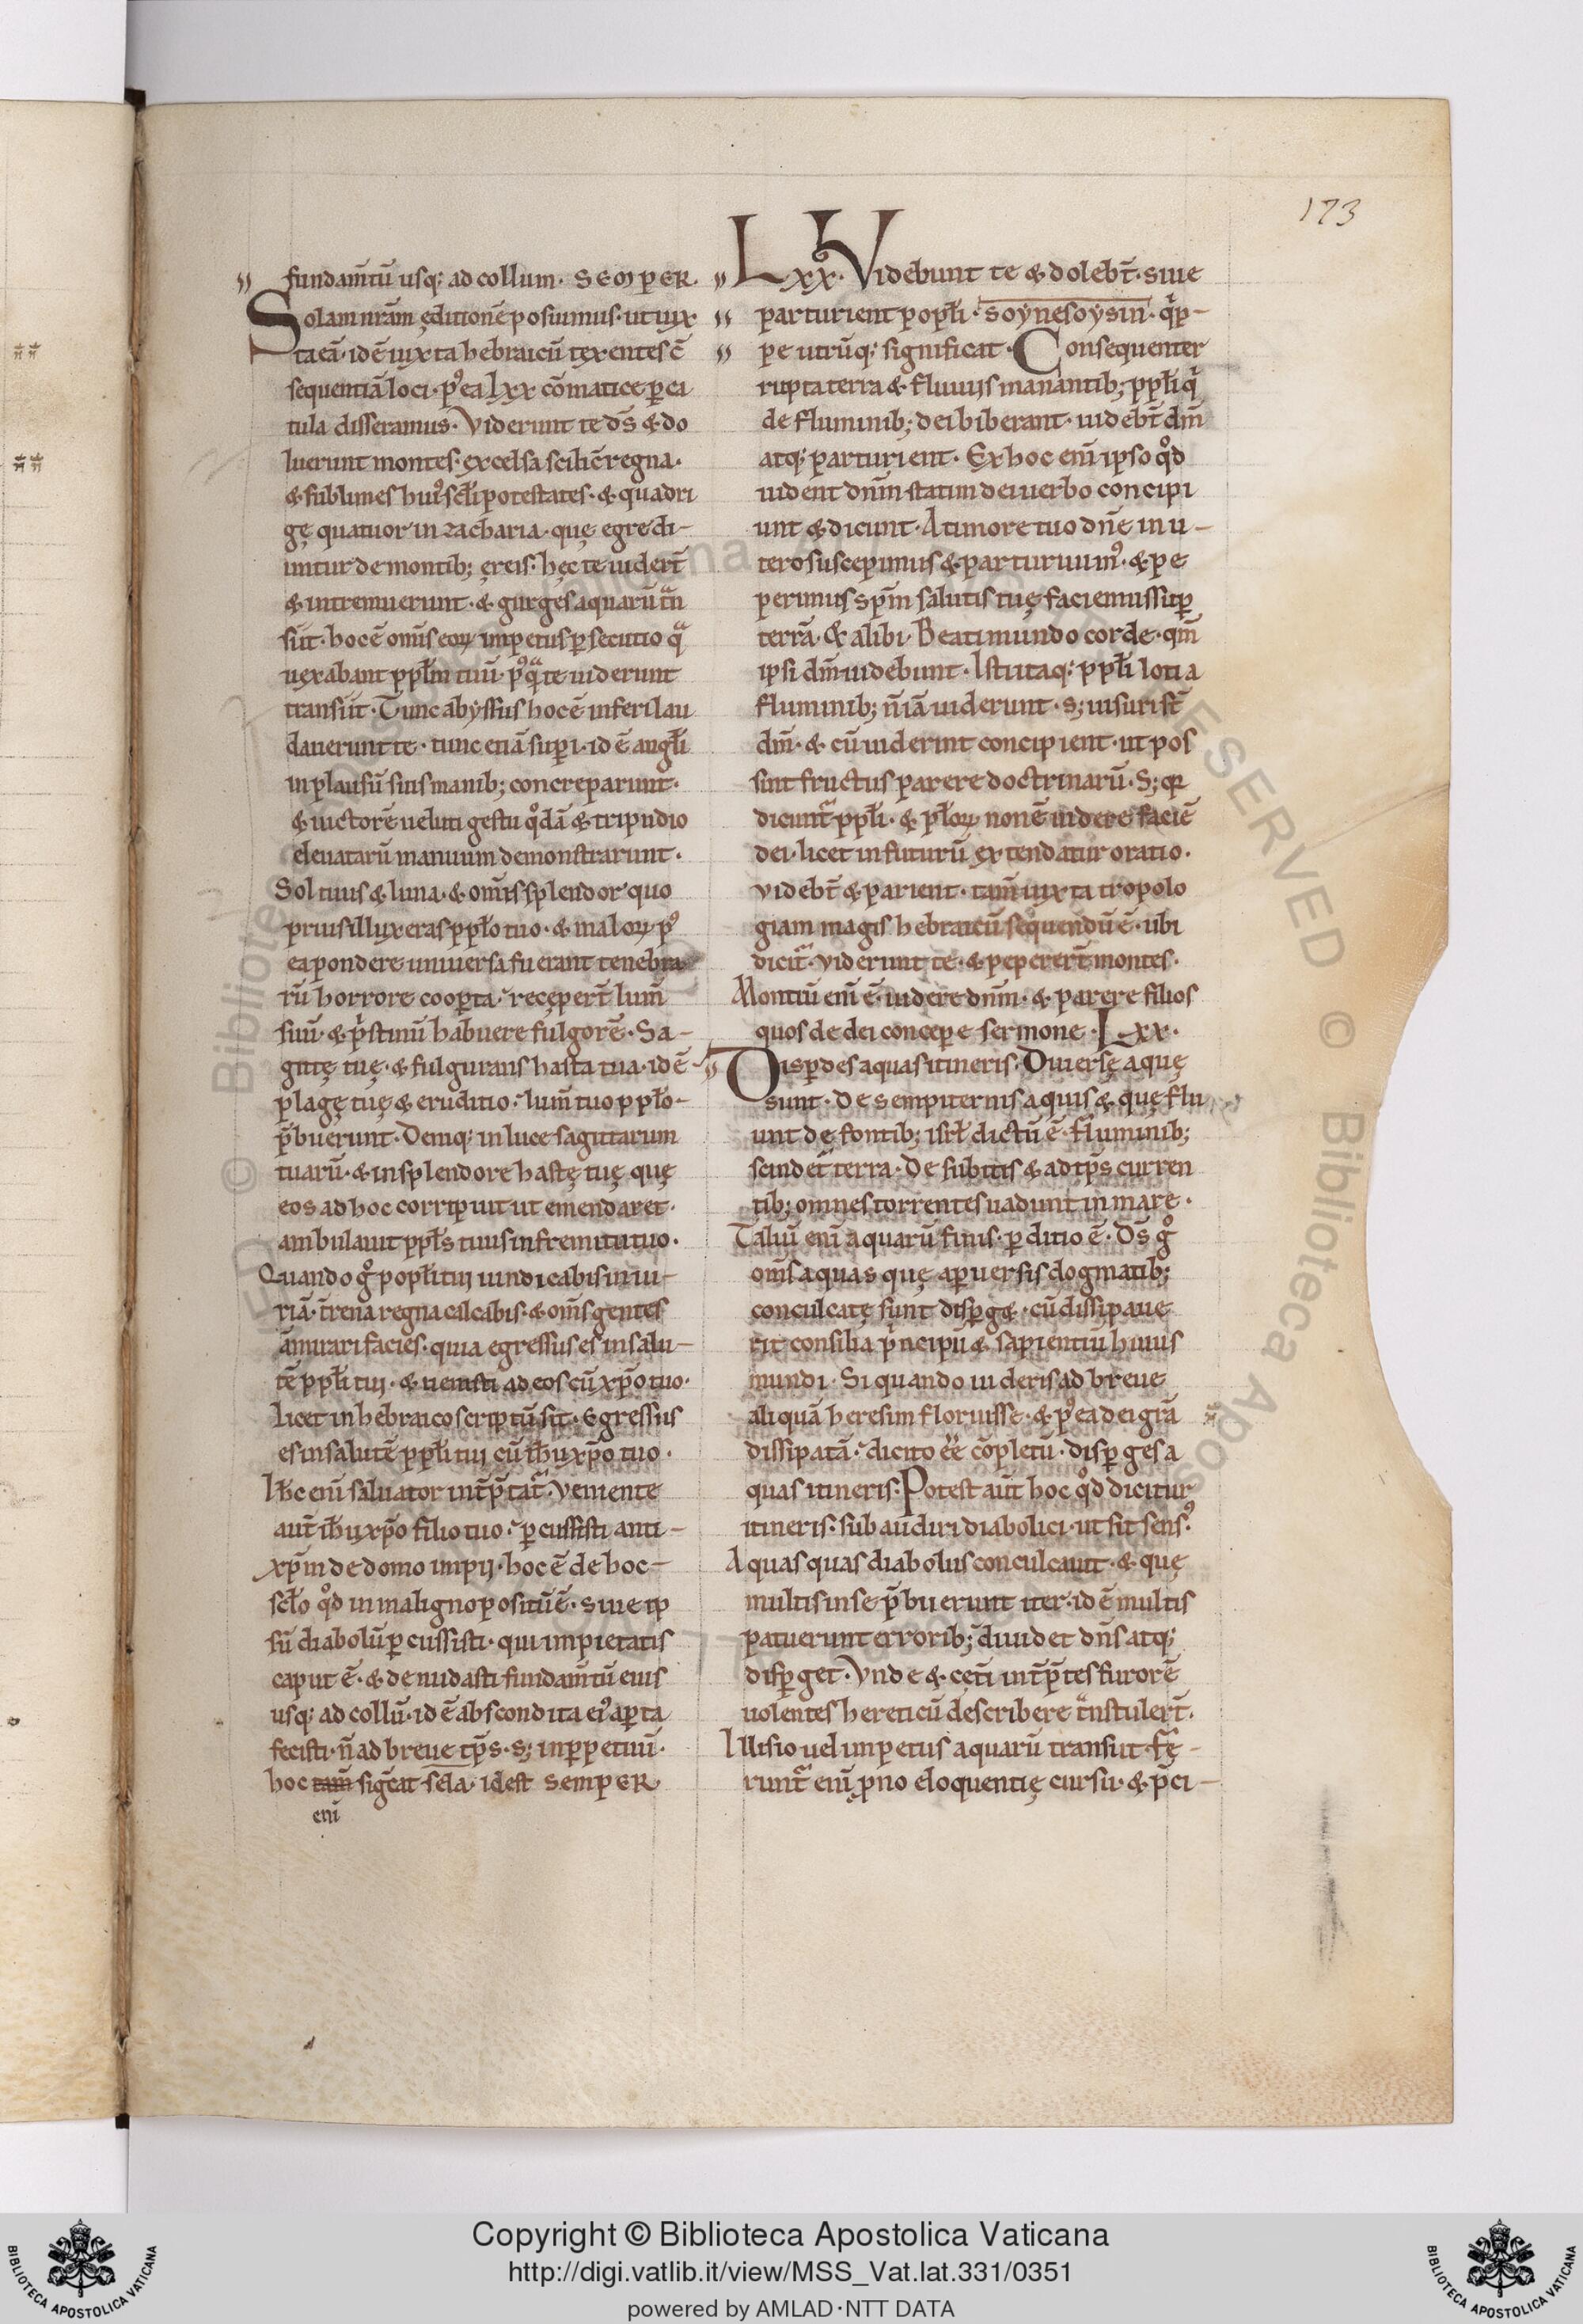 173
fundam̄tū usq; ad collum. SEMPER.
Solam nr̄am ęditionē posuimus. ut iux
ta eā. id ē iuxta hebraicū texentes c̄
sequentiā loci. p᷒ ea lxx cōmatice p̱ ca
tula disseramus. Viderunt te d̄s & do
luerunt montes. excelsa scilic̄ regna.
& sublimes hui᷒ sc̄li potestates. & quadri
gę quatuor in zacharia. quę egredi-
untur de montib; ęreis. hęc te uider̄t
& intremuerunt. & gurges aquarū t̄n
siit. hoc ē om̄s eoꝝ impetus p̱secutio q̄
uexabant pp̄lm tuū. p᷒ q̄ te uiderunt
transiit. Tunc abyssus hoc ē inferi lau
dauerunt te. tunc etiā sup̱i. id ē angl̄i
in plausū suis manib; concreparunt.
& uictorē ueluti gestu qd̄ā & tripudio
eleuatarū manuum demonstrarunt.
Sol tuus & luna. & om̄is splendor quo
prius illuxeras pp̄lo tuo. & maloꝝ p᷒
ea pondere uniuersa fuerant tenebra
rū horrore coop̱ta. recęper̄t lum̄
suū. & p̄stinū habuere fulgorē. Sa-
gittę tuę. & fulgurans hasta tua. id ē
plagę tuę & eruditio. lum̄ tuo pp̄lo-
p̄buerunt. Deniq; in luce sagittarum
tuarū. & in splendore hastę tuę quę
eos ad hoc corripuit ut emendaret.
ambulauit pp̄ls tuus in fremitu tuo.
Quando g̊ popl̄i tui uindicabis iniu-
riā. t̄rena regna calcabis. & om̄s gentes
āmirari facies. quia egressus es in salu-
tē pp̄li tui. & uenisti ad eos cū xp̄o tuo.
Licet in hebraico scriptū sit. Egressus
es in salutē pp̄li tui cū ih̄u xp̄o tuo.
Ih̄c enī saluator int̄p̄tat̄. Veniente
aut̄ ih̄u xp̄o filio tuo. p̱cussisti anti-
xp̄m de domo impii. hoc ē de hoc-
sc̄lo qd̄ in maligno positū ē. siue ip
sū diabolū p̱cussisti. qui impietatis
caput ē. & denudasti fundam̄tū eius
usq; ad collū. id ē abscondita ei᷒ ap̱ta
fecisti. n̄ ad breue tp̄s. s; in p̱petuū.
hoc tam̄ sig̅cat sela. idest SEMPER
enī
LXX. Videbunt te & doleb̄t. siue
parturient popl̄i. soynesoysin. q̄p̱-
pe utrūq; significat. Consequenter
rupta terra & fluuiis manantib; pp̄li q̄
de fluminib; dei biberant. uideb̄t dm̄
atq; parturient. Ex hoc enī ipso qd̄
uident dn̄m statim dei uerbo concipi
unt & dicunt. A timore tuo dn̄e in u-
tero suscepimus & parturiuim᷒. & pe
perimus sp̄m salutis tuę faciemus sup̱
terrā. & alibi. Beati mundo corde. qm̄
ipsi dm̄ uidebunt. Isti itaq; pp̄li loti a
fluminib; n̄ iā uiderunt. s; uisuri st̄
dm̄. & cū uiderint concipient. ut pos
sint fructus parere doctrinarū. S; qa
dicunt̄ pp̄li. & pl̄oꝝ non ē uidere faciē
dei. licet in futurū extendatur oratio.
videb̄t & parient. tam̄ iuxta tropolo
giam magis hebraicū sequendū ē. ubi
dicit̄. Viderunt te. & peperer̄t montes.
Montiū enī ē. uidere dn̄m. & parere filios
quos de dei concepe sermone. Lxx.
Disp̱des aquas itineris. Diuersę aquę
sunt. De sempiternis aquis & quę flu
unt de fontib; isrl̄ dictū ē. fluminib;
scindet̄ terra. De subitis & ad tp̄s curren
tib; omnes torrentes uadunt in mare.
Taliū enī aquarū finis. p̱ditio ē. Ds̄ g̊
om̄s aquas quę a p̱uersis dogmatib;
conculcatę sunt disp̱g&. cū dissipaue
rit consilia p̄ncipū & sapientiū huius
mundi. Si quando uideris ad breue
aliquā heresim floruisse. & p᷒ ea dei gr̄a
dissipatā. dicito ēe cōpletū. disp̱ges a
quas itineris. Potest aūt hoc qd̄ dicitur
itineris. subaudiri diabolici. ut sit sens᷒.
Aquas quas diabolus conculcauit. & quę
multis in se p̄buerunt iter. id ē multis
patuerunt errorib; diuidet dn̄s atq;
disp̱get. Vnde & cet̄i int̄p̄tes furorē
uolentes hereticū describere t̄nstuler̄t.
Illisio uel impetus aquarū transiit. fę-
runt̄ enī pno eloquentię cursu. & p̄ci-
Copyright © Biblioteca Apostolica Vaticana
http://digi.vatlib.it/view/MSS_Vat.lat.331/0351
powered by AMLAD·NTT DATA
BIBLIOTECA APOSTOLICA VATICANA
BIBLIOTECA APOSTOLICA VATICANA